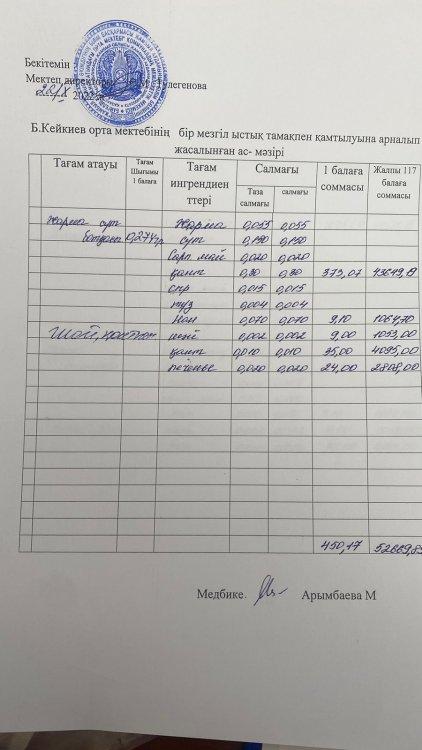 Бекітемін
Мектеп директоры Тулегенова
2022
Б.Кейкиев орта мектебінің бір мезгіл ыстық тамақпен қамтылуына арналып
жасалынған ас- мәзірі
Тағам атауы Тағам Шығымы 1 балаға Тағам ингрендиен ттері Салмағы 1 балаға соммасы Жалпы 117 балаға соммасы
Таза салмағы салмағы
Жарма сут Жарма 0,055 0,055
ботқасы 0,274гр сут 0,150 0,150
Сары май 0,020 0,020
қант 0,30 0,30 373,07 43649,19
0,015 0,015
туз 0,004 0,004
Нан 0,070 0,070 9,10 1064,70
Шай, шай 0,002 0,002 9,00 1053,00
қант 0,010 0,010 35,00 4095,00
печенье 0,020 0,020 24,00 2808,00
450,17 52669,89
Медбике Арымбаева М